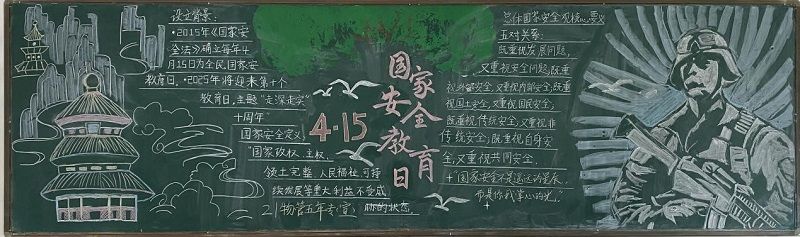 设立背景：
·2015年《国家安
全法》确立每年4
月15日为全民国家安
教育日。·2025年将迎来第十个
教育日，主题"走深走实"
十周年"
国家安全定义
"国家政权、主权、
领土完整 人民福祉 可持
续发展等重大利益不受威
胁的状态。
21物管五年专(宣)
4·15
国家安全教育日
总体国家安全观核心要义
五对关系：
既重视发展问题，
又重视安全问题；既重
视外部安全，又重视内部安全；既重
视国土安全，又重视国民安全；
既重视传统安全，又重视非
传统安全；既重视自身安
全，又重视共同安全。
"国家安全不是遥远的星辰，
而是你我掌心的光。"